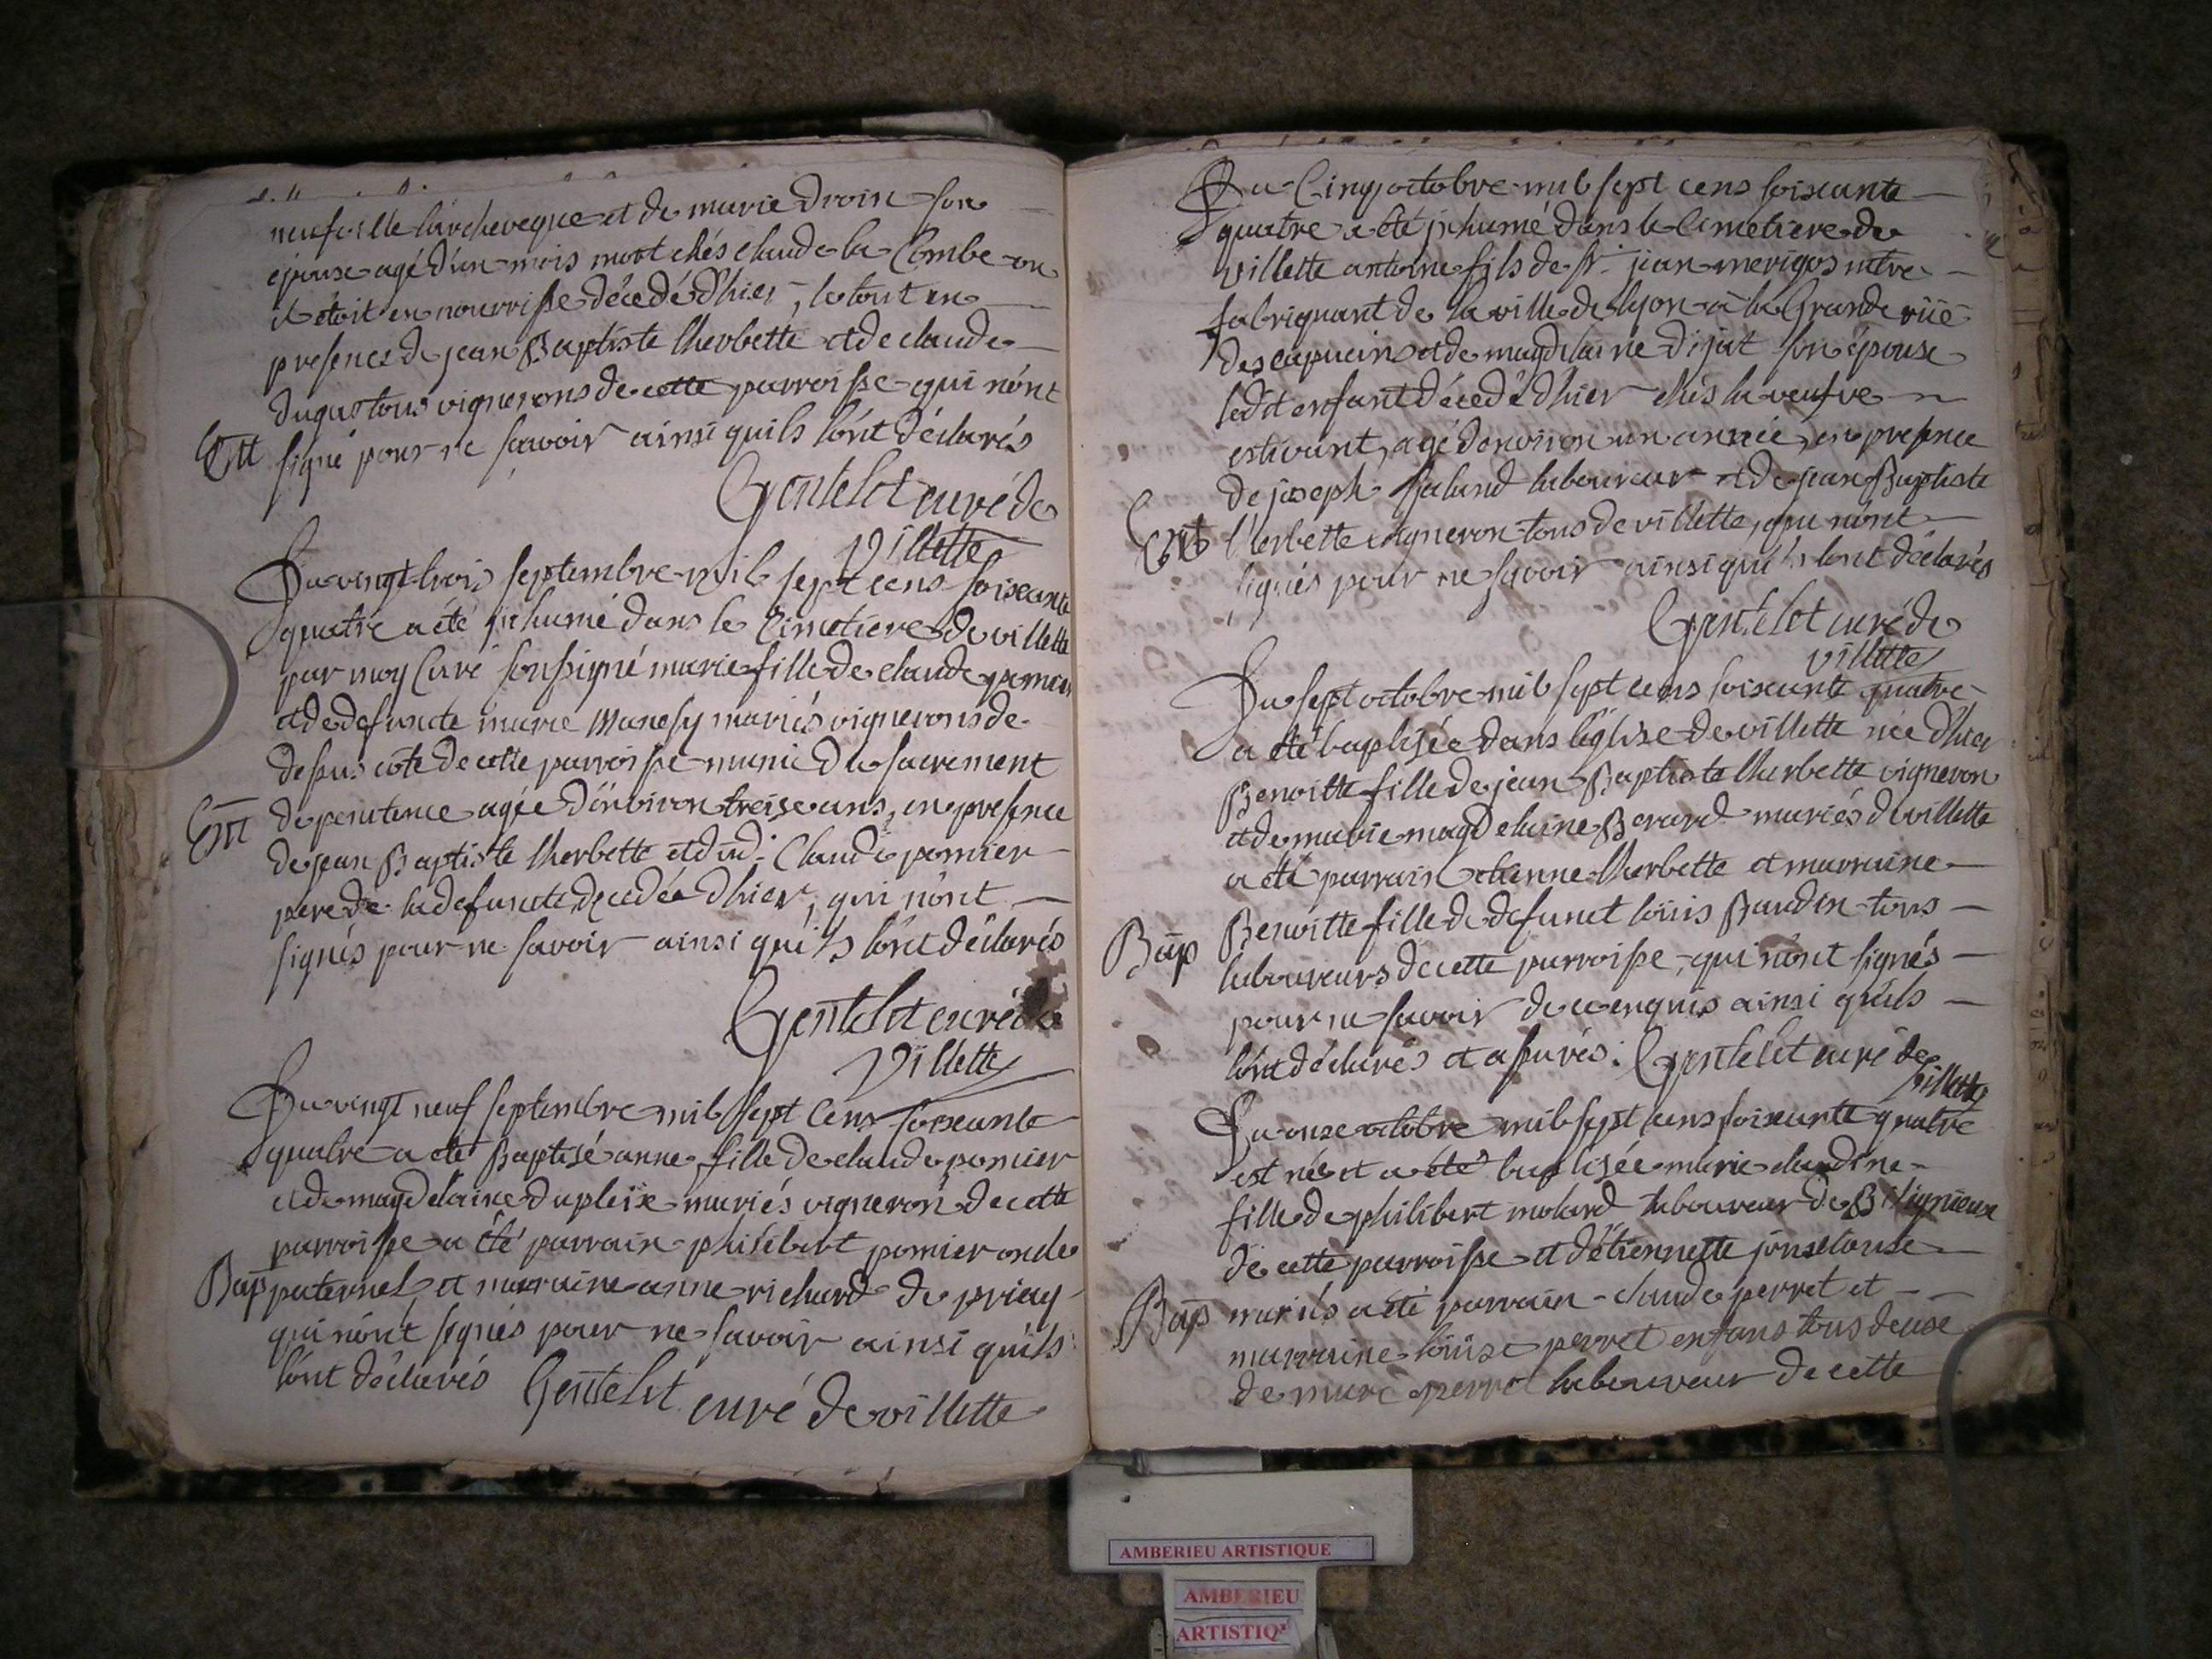 neufville larcheveque et de marie droin son
epouse agé d'un mois mort chés claude la Combe ou
il étoit en nourrisse décedé d'hier, le tout en
presence de jean Baptiste lherbette et de claude
dugas tous vignerons de cette parroisse qui nónt
Ent signé pour ne savoir ainsi quils lónt déclarés
Gentelet curé de
Villette
Du vingt trois septembre mil sept cens soixante
quatre a été jnhumé dans le Cimetiere de villette
par moy Curé soussigné marie fille de claude pomier
et de defuncte marie Manesy mariés vignerons de
dessus côte de cette parroisse munie du sacrement
Ent de penitence agée d'environ treise ans, en presence
de jean Baptiste lherbette et dud. Claude pomier
pere de la defuncte decedée d'hier, qui nónt
signés pour ne savoir ainsi qu'ils lónt déclarés
Gentelet curé de
Villette
Du vingt neuf septembre mil sept Cens soixante
quatre a été Baptisé anne fille de claude pomier
et de magdelaine dupleix mariés vigneron de cette
parroisse a été parrain philibert pomier oncle
Bap paternel et marraine anne richard de priay
qui nónt signés pour ne savoir ainsi quils
lónt déclarés Gentelet curé de villette
Du Cinq octobre mil sept cens soixante
quatre a été jnhumé dans le Cimetiere de
villette antoine fils de sr. jean merigos mtre
fabriquant de la ville de lyon à la Grande rüe
des capucins et de magdelaine dijat son épouse
ledit enfant décedé d'hier chés la veufve
estivant, agé d'environ un année, en presence
de joseph jaland laboureur et de jean Baptiste
Ent l'herbette vigneron tous de villette, qui nónt
signés pour ne savoir ainsi qu'ils lont déclarés
Gentelet curé de
villette
Du sept octobre mil sept cens soixante quatre
a été baptisée dans léglise de villette née d'hier
Benoitte fille de jean Baptiste lherbette vigneron
et de marie magdelaine Berard mariés de villette
a été parrain etienne lherbette et marraine
Benoitte fille de defunct loüis Baudin tous
Bap laboureurs de cette parroisse, qui nónt signés
pour ne savoir de ce enquis ainsi quils
lónt déclarés et assurés. Gentelet curé de
villette
Du onze octobre mil sept cens soixante quatre
est née et a été baptisée marie claudine
fille de philibert molard laboureur de Bilignieux
de cette parroisse et d'étiennette
Bap mariés a été parrain claude perret et
marraine loüise perret enfans tous deux
de marc perret laboureur de cette
AMBERIEU ARTISTIQUE
AMBERIEU
ARTISTIQ